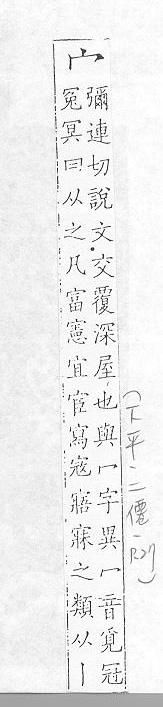 宀
彌連切說文交覆深屋也與冖字異冖音覓冠
冤冥冃从之凡富憲宜宦寫寇寤寐之類从丨
(下平·二僊·P.27)